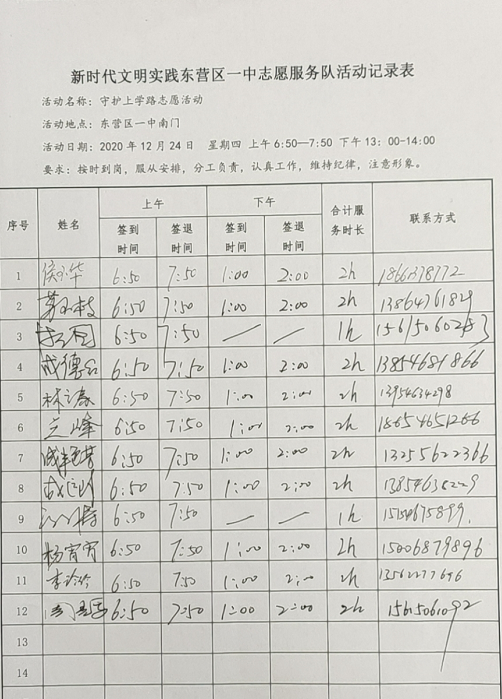 新时代文明实践东营区一中志愿服务队活动记录表
活动名称：守护上学路志愿活动
活动地点：东营区一中南门
活动日期：2020年12月24日 星期四 上午6:50—7:50 下午13：00-14:00
要求：按时到岗，服从安排，分工负责，认真工作，维持纪律，注意形象。
序号 姓名 上午 下午 合计服务时长 联系方式
签到时间 签退时间 签到时间 签退时间
1 6:50 7:50 1:00 2:00 2h
2 6:50 7:50 1:00 2:00 2h
3 6:50 7:50 — — 1h
4 成德 6:50 7:50 1:00 2:00 2h 13854681866
5 林 6:50 7:50 1:00 2:00 2h 13954634298
6 峰 6:50 7:50 1:00 2:00 2h 18654651266
7 6:50 7:50 1:00 2:00 2h 13255622366
8 6:50 7:50 1:00 2:00 2h
9 6:50 7:50 — — 1h
10 杨宵宵 6:50 7:50 1:00 2:00 2h 15006879896
11 李 6:50 7:50 1:00 2:00 2h 13562277696
12 6:50 7:50 1:00 2:00 2h 15615061092
13
14